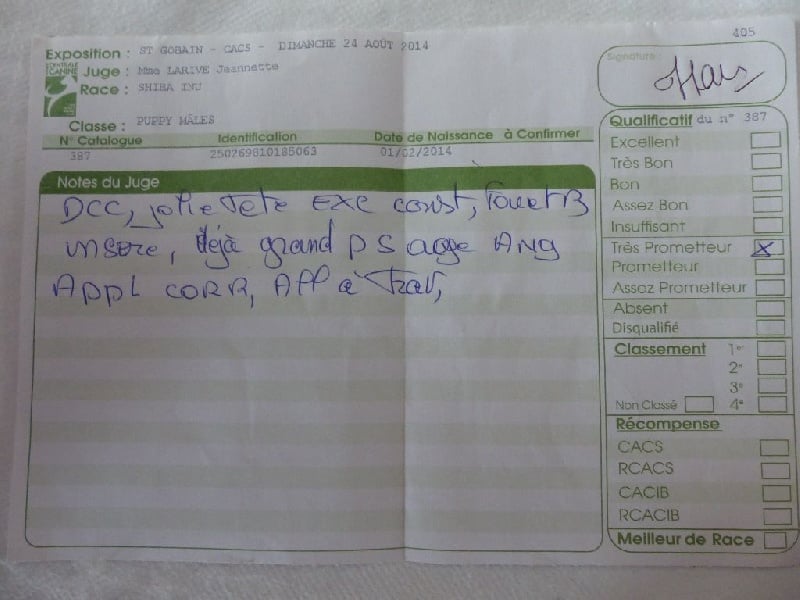 405
Exposition : ST GOBAIN - CACS - DIMANCHE 24 AOÛT 2014
Juge : Mme LARIVE Jeannette
Race : SHIBA INU
Classe : PUPPY MÂLES
N° Catalogue Identification Date de Naissance à Confirmer
387 250269810185063 01/02/2014
Notes du Juge
DCC, jolie Tete EXC const, Fouet B
insere, déjà grand ps age ANG
APPL CORR, All à Trav,
Signature :
Qualificatif du n° 387
Excellent
Très Bon
Bon
Assez Bon
Insuffisant
Très Prometteur X
Prometteur
Assez Prometteur
Absent
Disqualifié
Classement 1er
2e
3e
Non Classé 4e
Récompense
CACS
RCACS
CACIB
RCACIB
Meilleur de Race